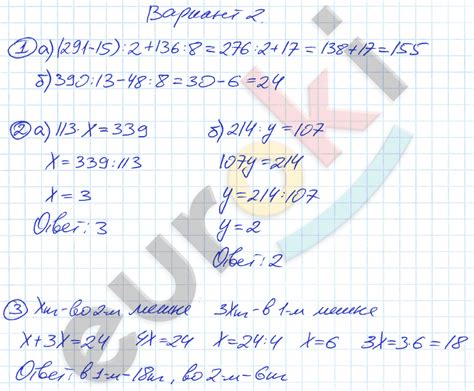 Вариант 2.
① а) (291-15):2+136:8=276:2+17=138+17=155
б) 390:13-48:8=30-6=24
② а) 113·X=339 б) 214:y=107
X=339:113 107y=214
X=3 y=214:107
Ответ: 3 y=2
Ответ: 2
③ Xкг-во 2-м мешке 3Xкг-в 1-м мешке
X+3X=24 4X=24 X=24:4 X=6 3X=3·6=18
Ответ: в 1-м-18кг, во 2-м-6кг
euroki